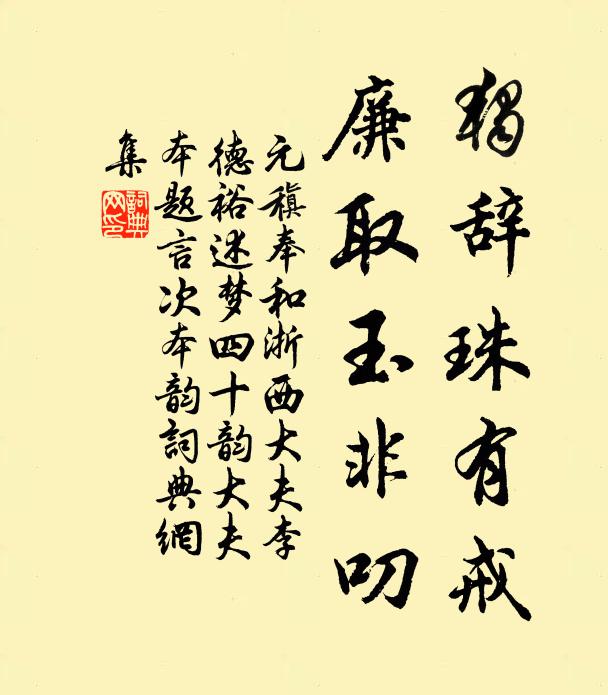 獨辞珠有戒
廉取玉非叨
元稹奉和浙西大夫李
德裕述梦四十韵大夫
本题言次本韵詞典網
集
詞典
网印